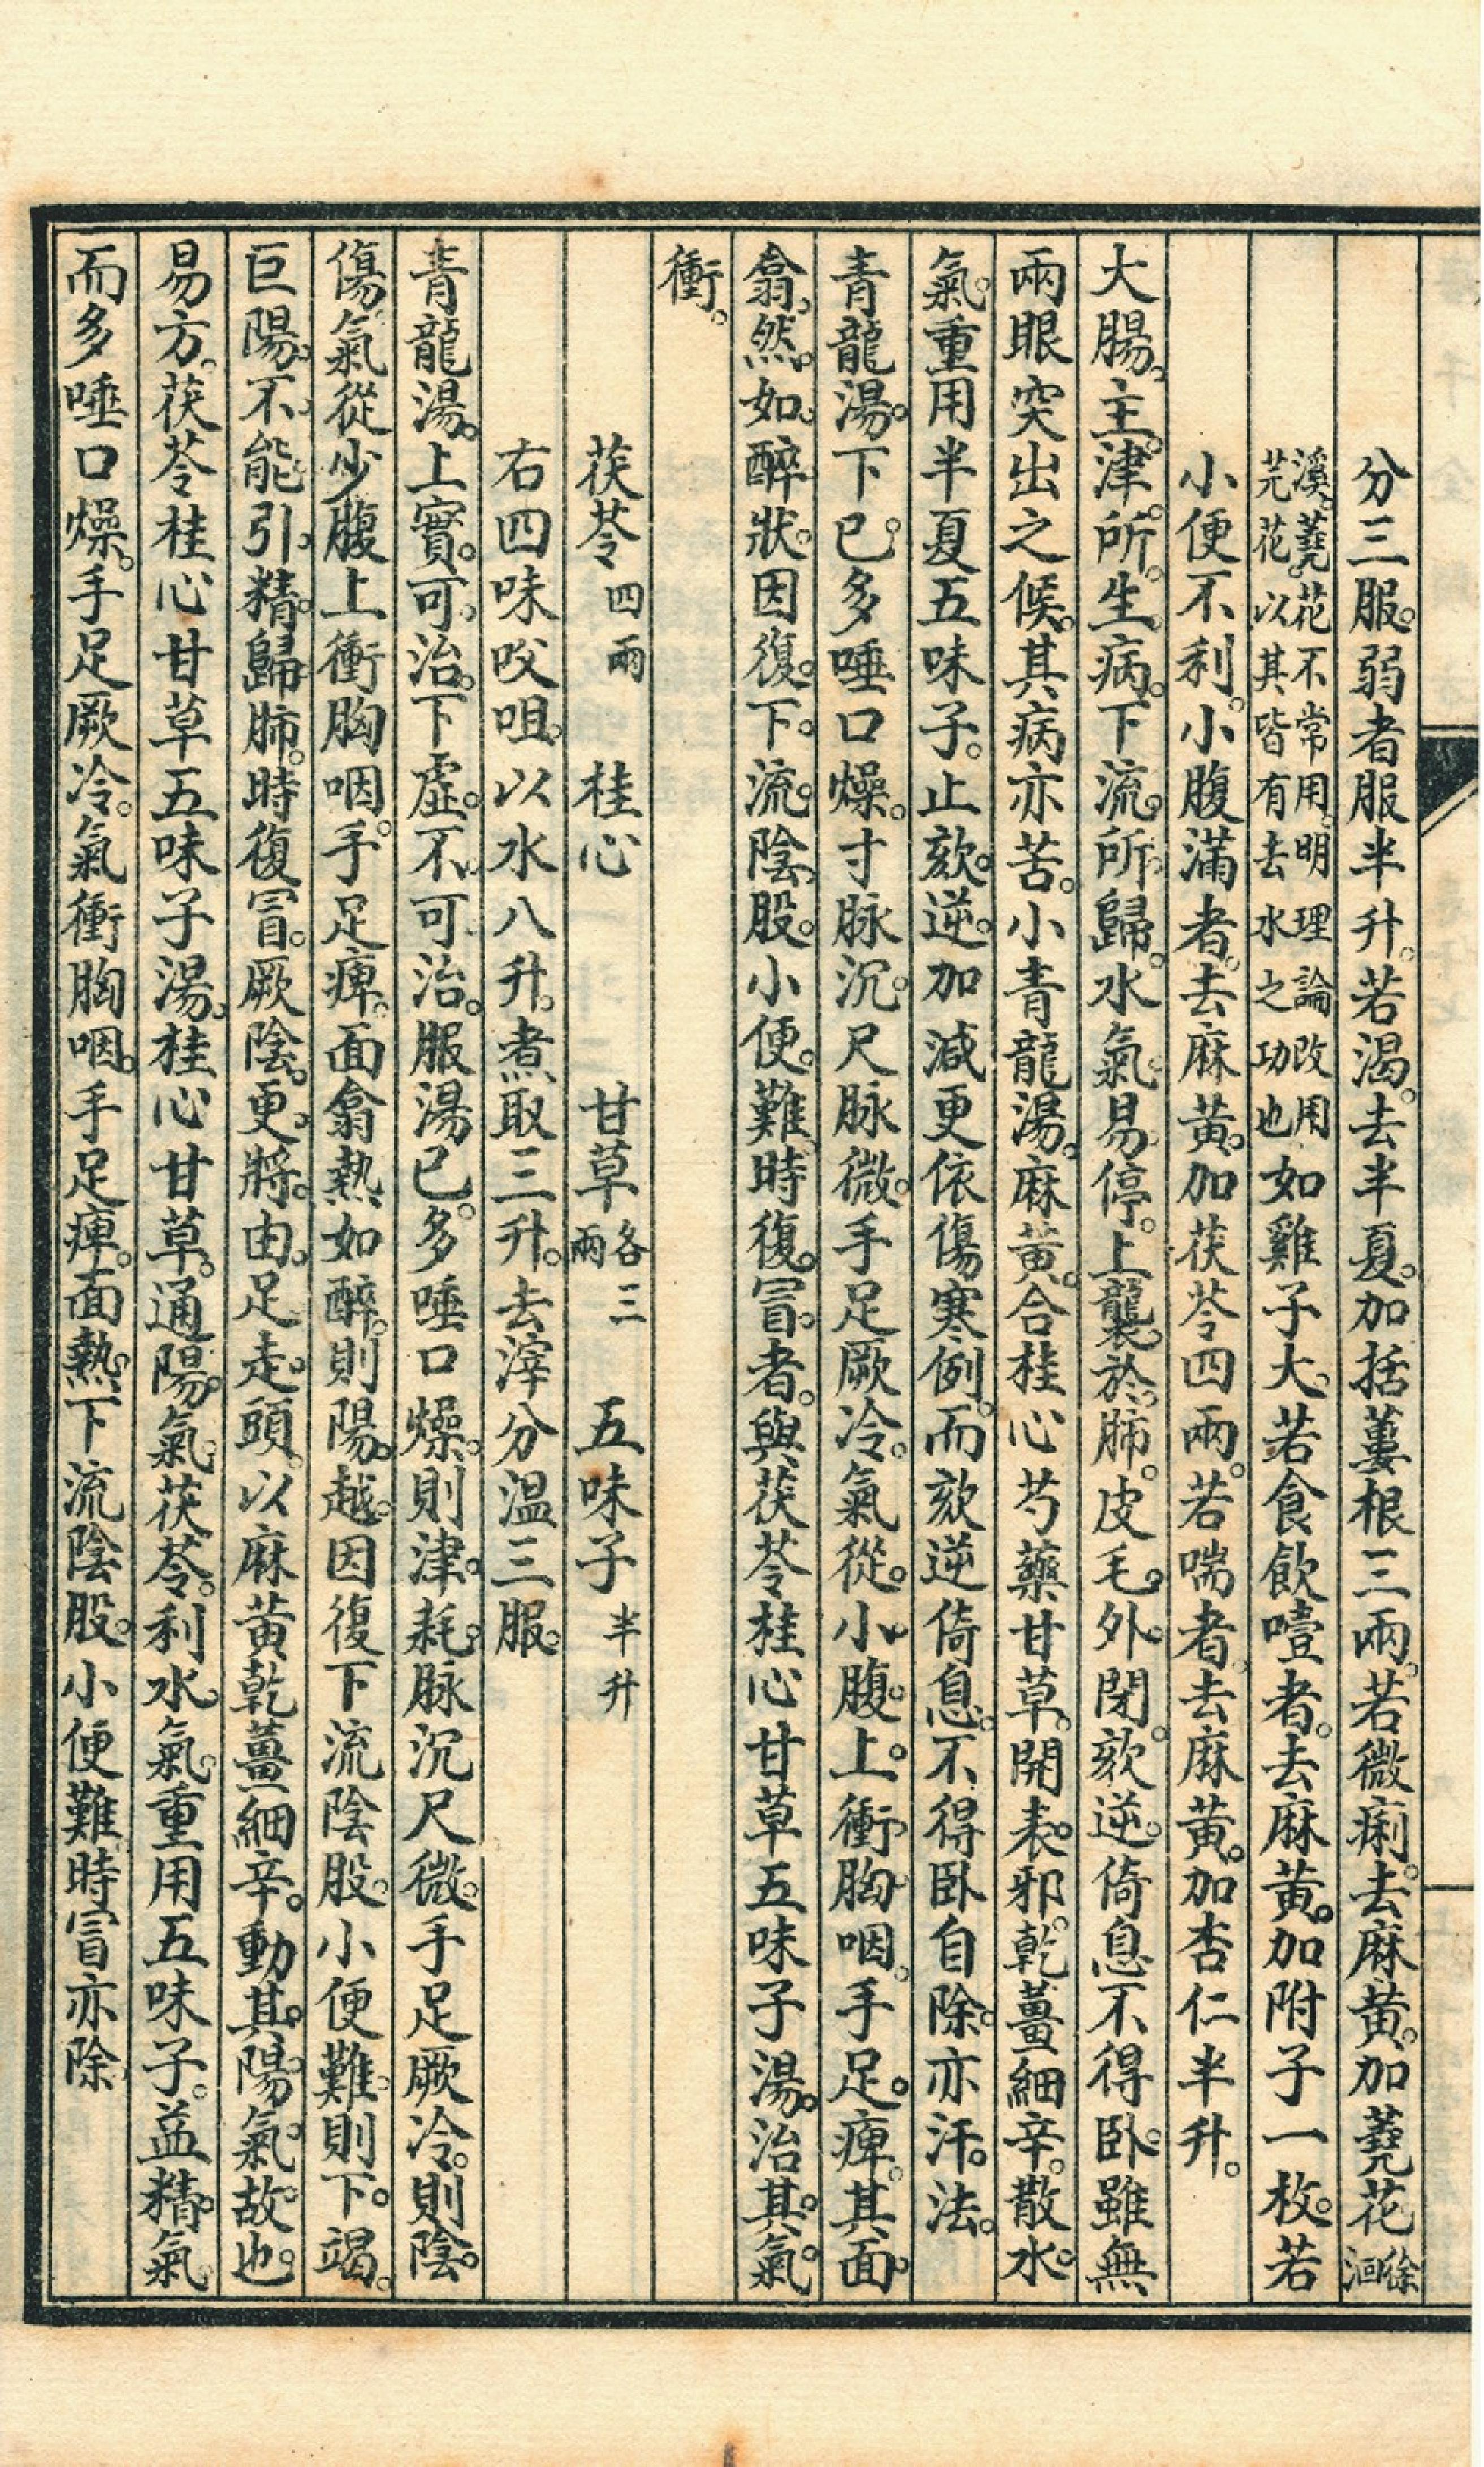 分三服。弱者服半升。若渴。去半夏。加括蔞根三兩。若微痢。去麻黃。加蕘花徐洄
溪。蕘花不常用。明理論改用芫花。以其皆有去水之功也如雞子大。若食飲噎者。去麻黃。加附子一枚。若
小便不利。小腹滿者。去麻黃。加茯苓四兩。若喘者。去麻黃。加杏仁半升。
大腸。主。津。所。生。病。下流。所。歸。水氣。易停。上襲。於。肺。皮毛。外。閉。欬逆。倚息不得臥。雖無
兩眼突出之候。其病亦苦。小青龍湯。麻黃。合桂心芍藥甘草。開表。邪。乾薑細辛。散水。
氣。重用半夏五味子。止欬。逆。加減更依傷寒例。而欬逆倚息。不得臥自除。亦汗。法。
青龍湯。下已。多唾口燥。寸脉沉。尺脉微。手足厥冷。氣從。小。腹。上。衝。胸。咽。手足。痺。其面。
翕。然。如。醉。狀。因復。下。流。陰。股。小便。難。時復。冒。者。與茯苓桂心甘草五味子湯。治其。氣
衝。
茯苓四兩　桂心　甘草各三兩　五味子半升
右四味㕮咀。以水八升。煮取三升。去滓分溫三服。
青龍湯。上實。可。治。下虛。不。可治。服湯已。多唾口燥。則津。耗。脉沉尺微。手足厥冷。則陰。
傷。氣從少腹上衝胸咽。手足痺。面翕熱如醉。則陽。越。因復下流陰股。小便難。則下。竭。
巨陽。不。能。引。精。歸。肺。時復冒。厥陰。更。將。由。足。走。頭。以麻黃乾薑細辛。動。其。陽。氣。故。也。
易方。茯苓桂心甘草五味子湯。桂心甘草。通。陽。氣。茯苓。利水。氣。重用五味子。益精。氣。
而多唾口燥。手足厥冷。氣衝胸咽。手足痺。面熱。下流陰股。小便難時冒亦除